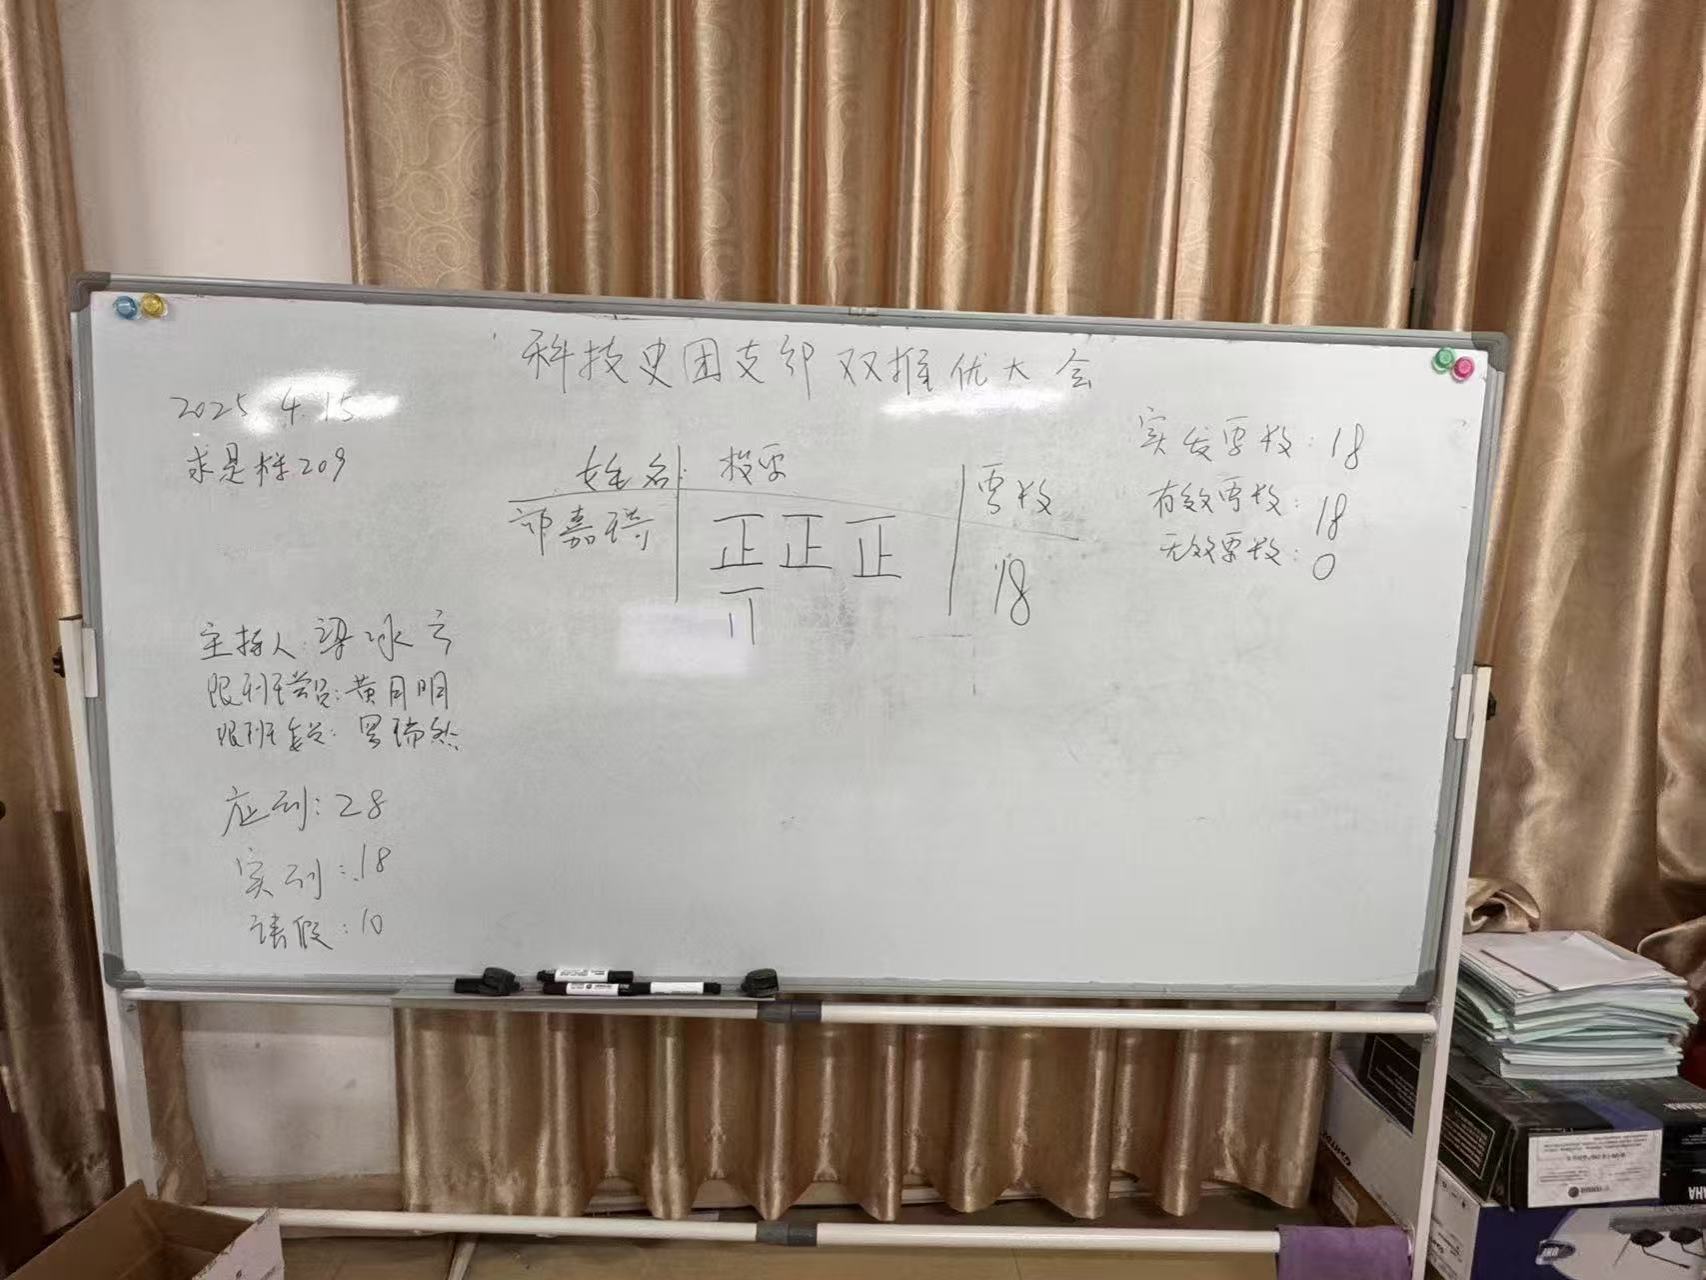 科技史团支部双推优大会
2025.4.15
求是楼209
姓名 投票 票数
祁嘉琦 正正正 18
实发票数：18
有效票数：18
无效票数：0
主持人：梁冰
黄月明
罗瑞然
应到：28
实到：18
请假：10
YAMAHA